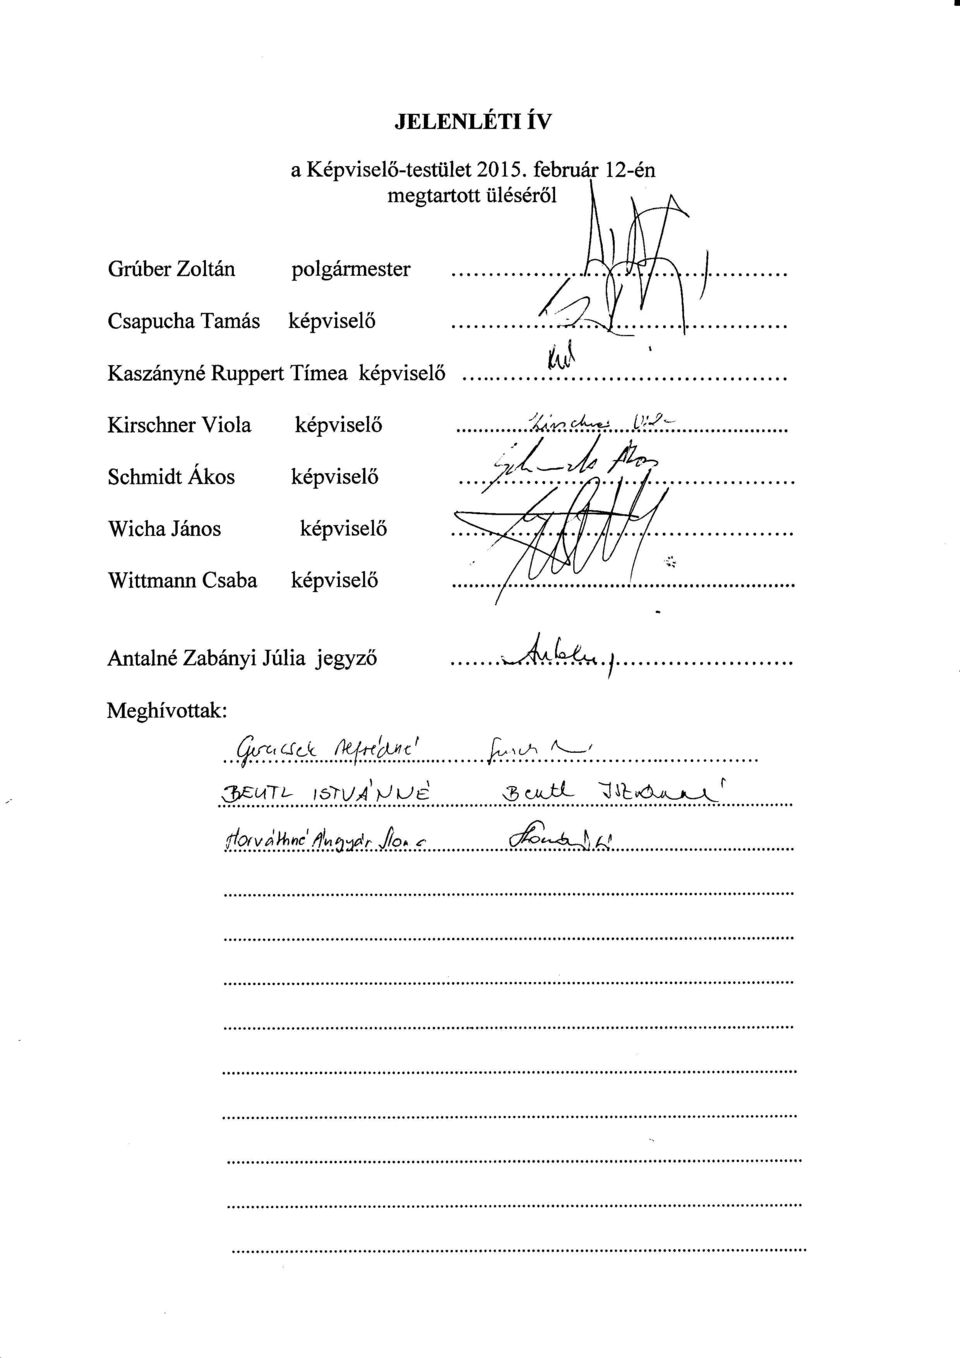 JELENLÉTI ÍV
a Képviselő-testület 2015. február 12-én
megtartott üléséről
Grúber Zoltán polgármester
Csapucha Tamás képviselő
Kaszányné Ruppert Tímea képviselő
Kirschner Viola képviselő Kirschner Viola
Schmidt Ákos képviselő Schmidt Ákos
Wicha János képviselő
Wittmann Csaba képviselő
Antalné Zabányi Júlia jegyző
Meghívottak:
BEUTL ISTVÁNNÉ Beutl Istvánné
Horváthné Angyár